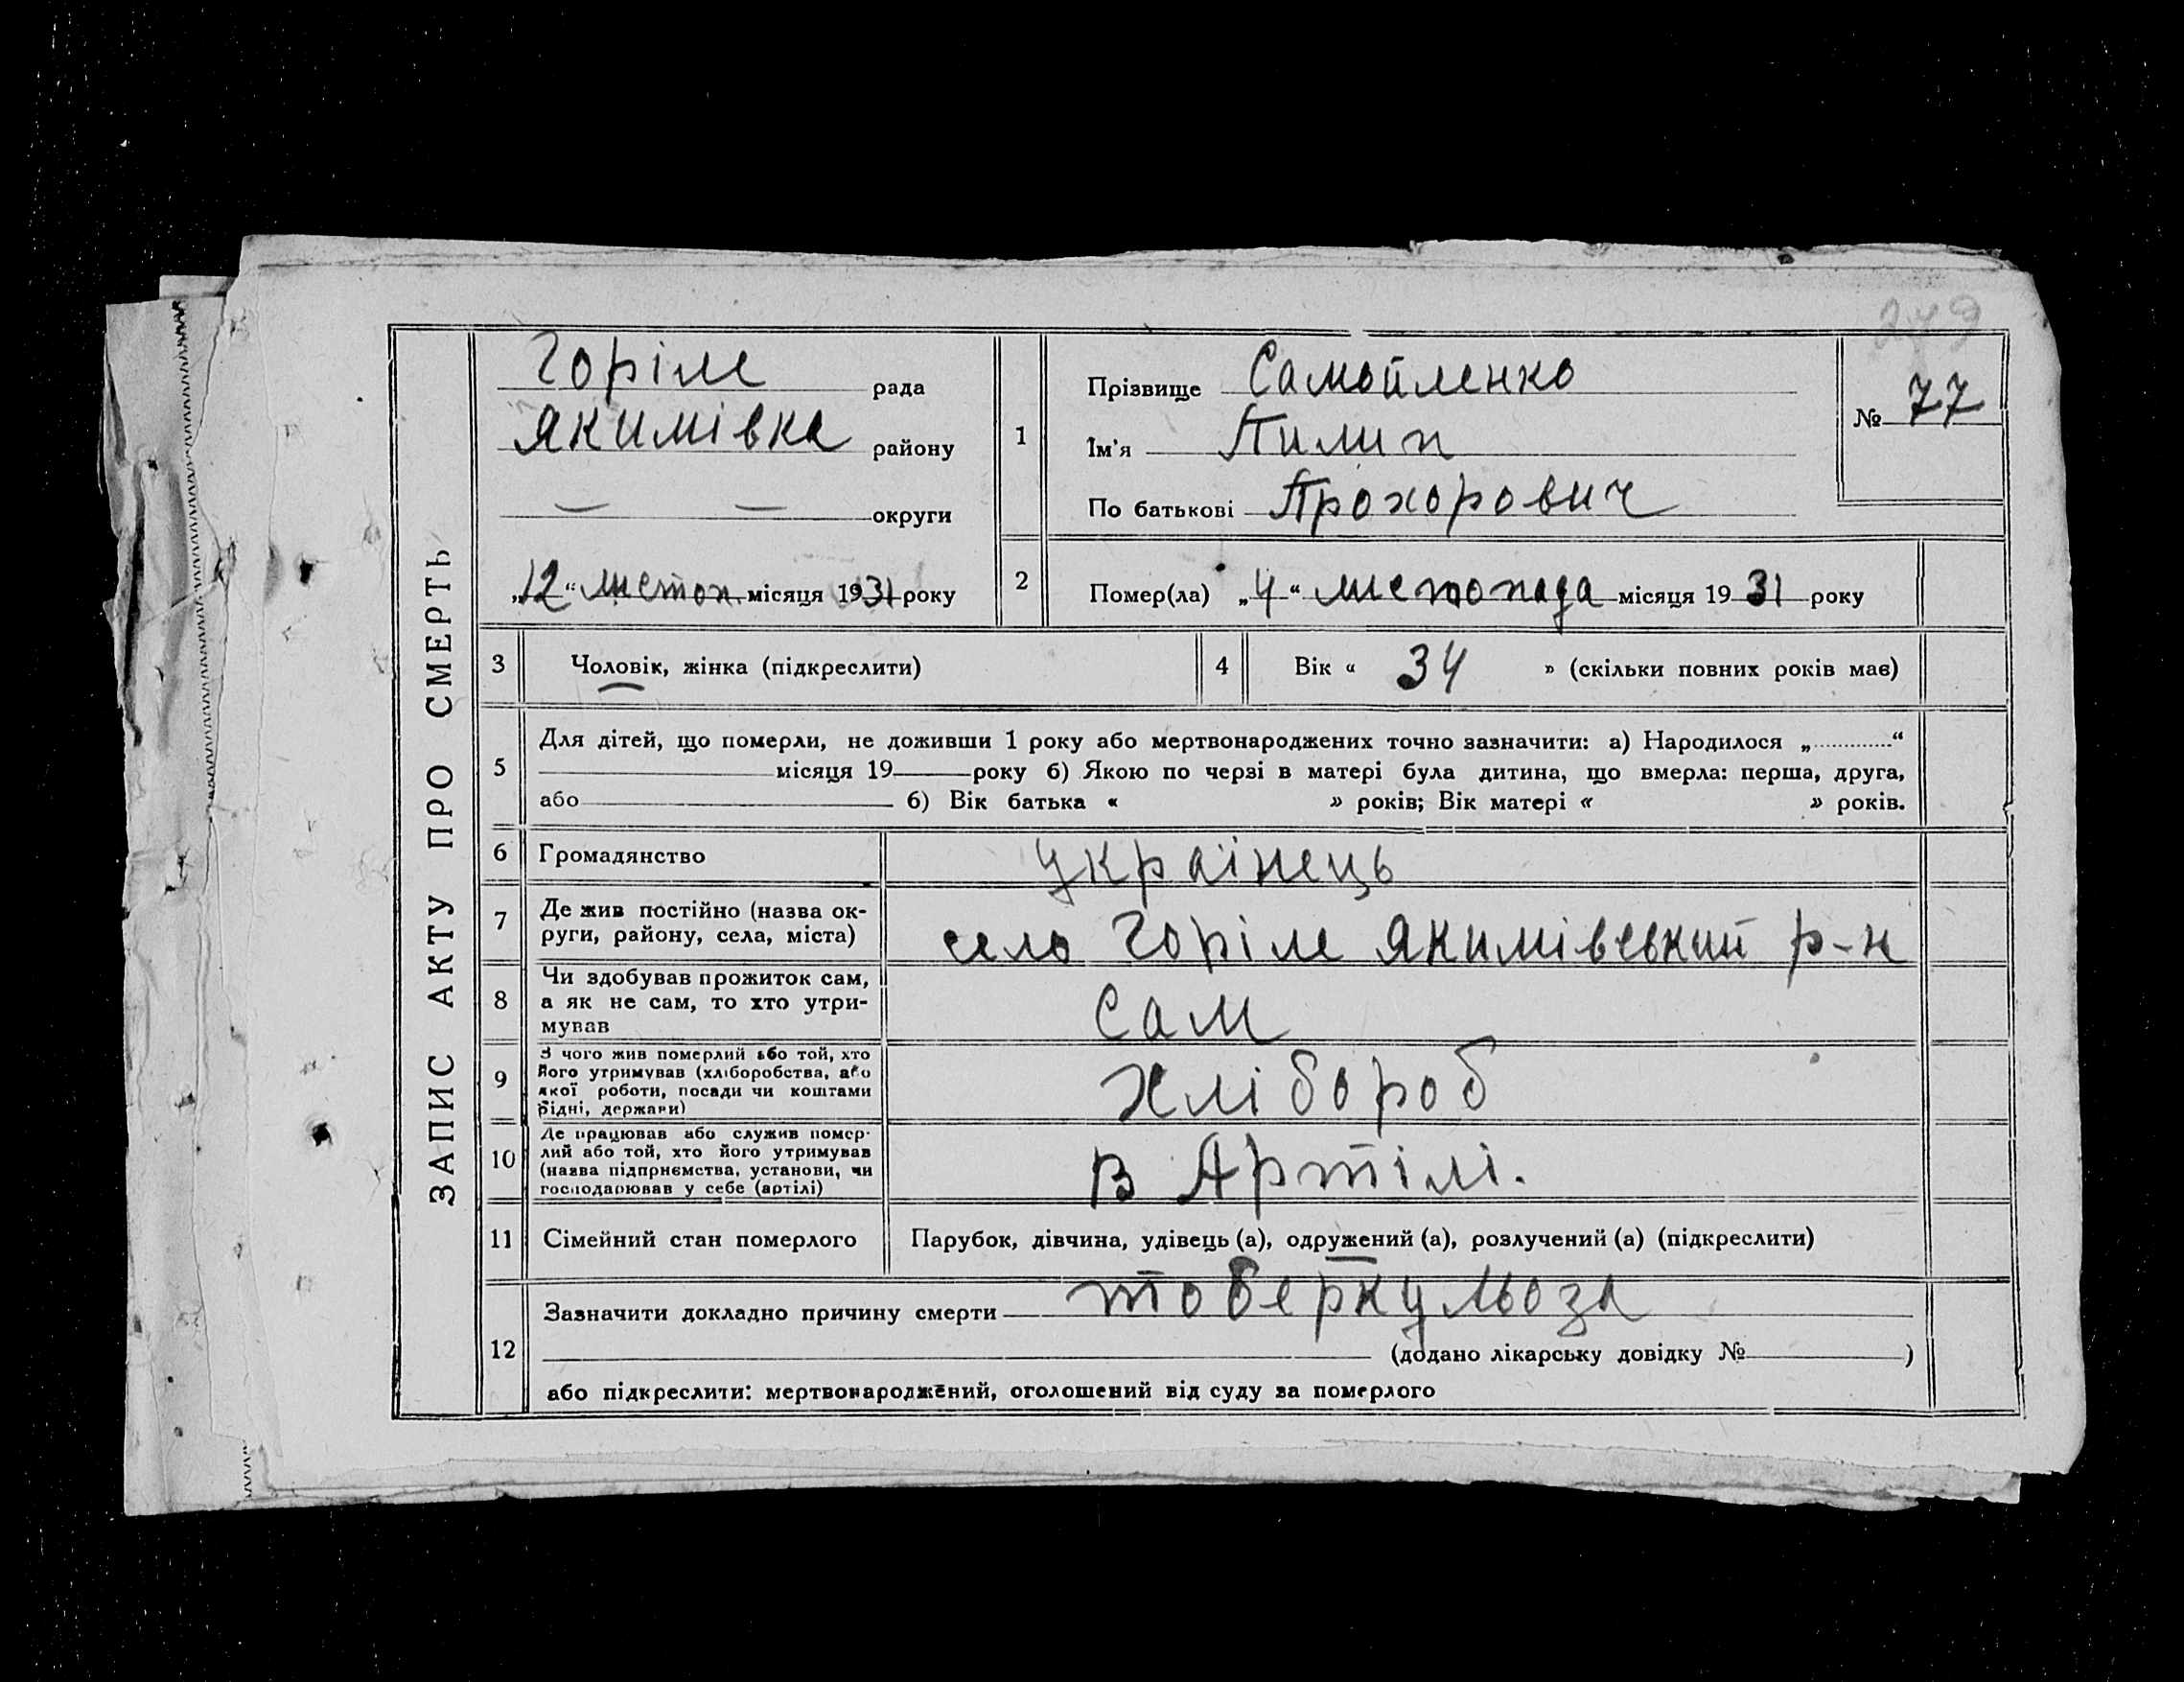 279
ЗАПИС АКТУ ПРО СМЕРТЬ
Горіле рада
Якимівка району
— — округи
„12“ листоп. місяця 1931 року
1
Прізвище Самойленко
Ім'я Пилип
По батькові Прохорович
№ 77
2 Помер(ла) „4“ листопада місяця 1931 року
3 Чоловік, жінка (підкреслити)
4 Вік « 34 » (скільки повних років має)
5 Для дітей, що померли, не доживши 1 року або мертвонароджених точно зазначити: а) Народилося „............“
місяця 19 року б) Якою по черзі в матері була дитина, що вмерла: перша, друга,
або б) Вік батька « » років; Вік матері « » років.
6 Громадянство українець
7 Де жив постійно (назва ок-
руги, району, села, міста)
село Горіле Якимівський р-н
8 Чи здобував прожиток сам,
а як не сам, то хто утри-
мував
Сам
9 З чого жив померлий або той, хто
його утримував (хліборобства, або
якої роботи, посади чи коштами
рідні, держави)
хлібороб
10 Де працював або служив помер-
лий або той, хто його утримував
(назва підприємства, установи, чи
господарював у себе (артілі)
В Артілі.
11 Сімейний стан померлого Парубок, дівчина, удівець (а), одружений (а), розлучений (а) (підкреслити)
12 Зазначити докладно причину смерти тоберкульоза
(додано лікарську довідку № )
або підкреслити: мертвонароджений, оголошений від суду за померлого